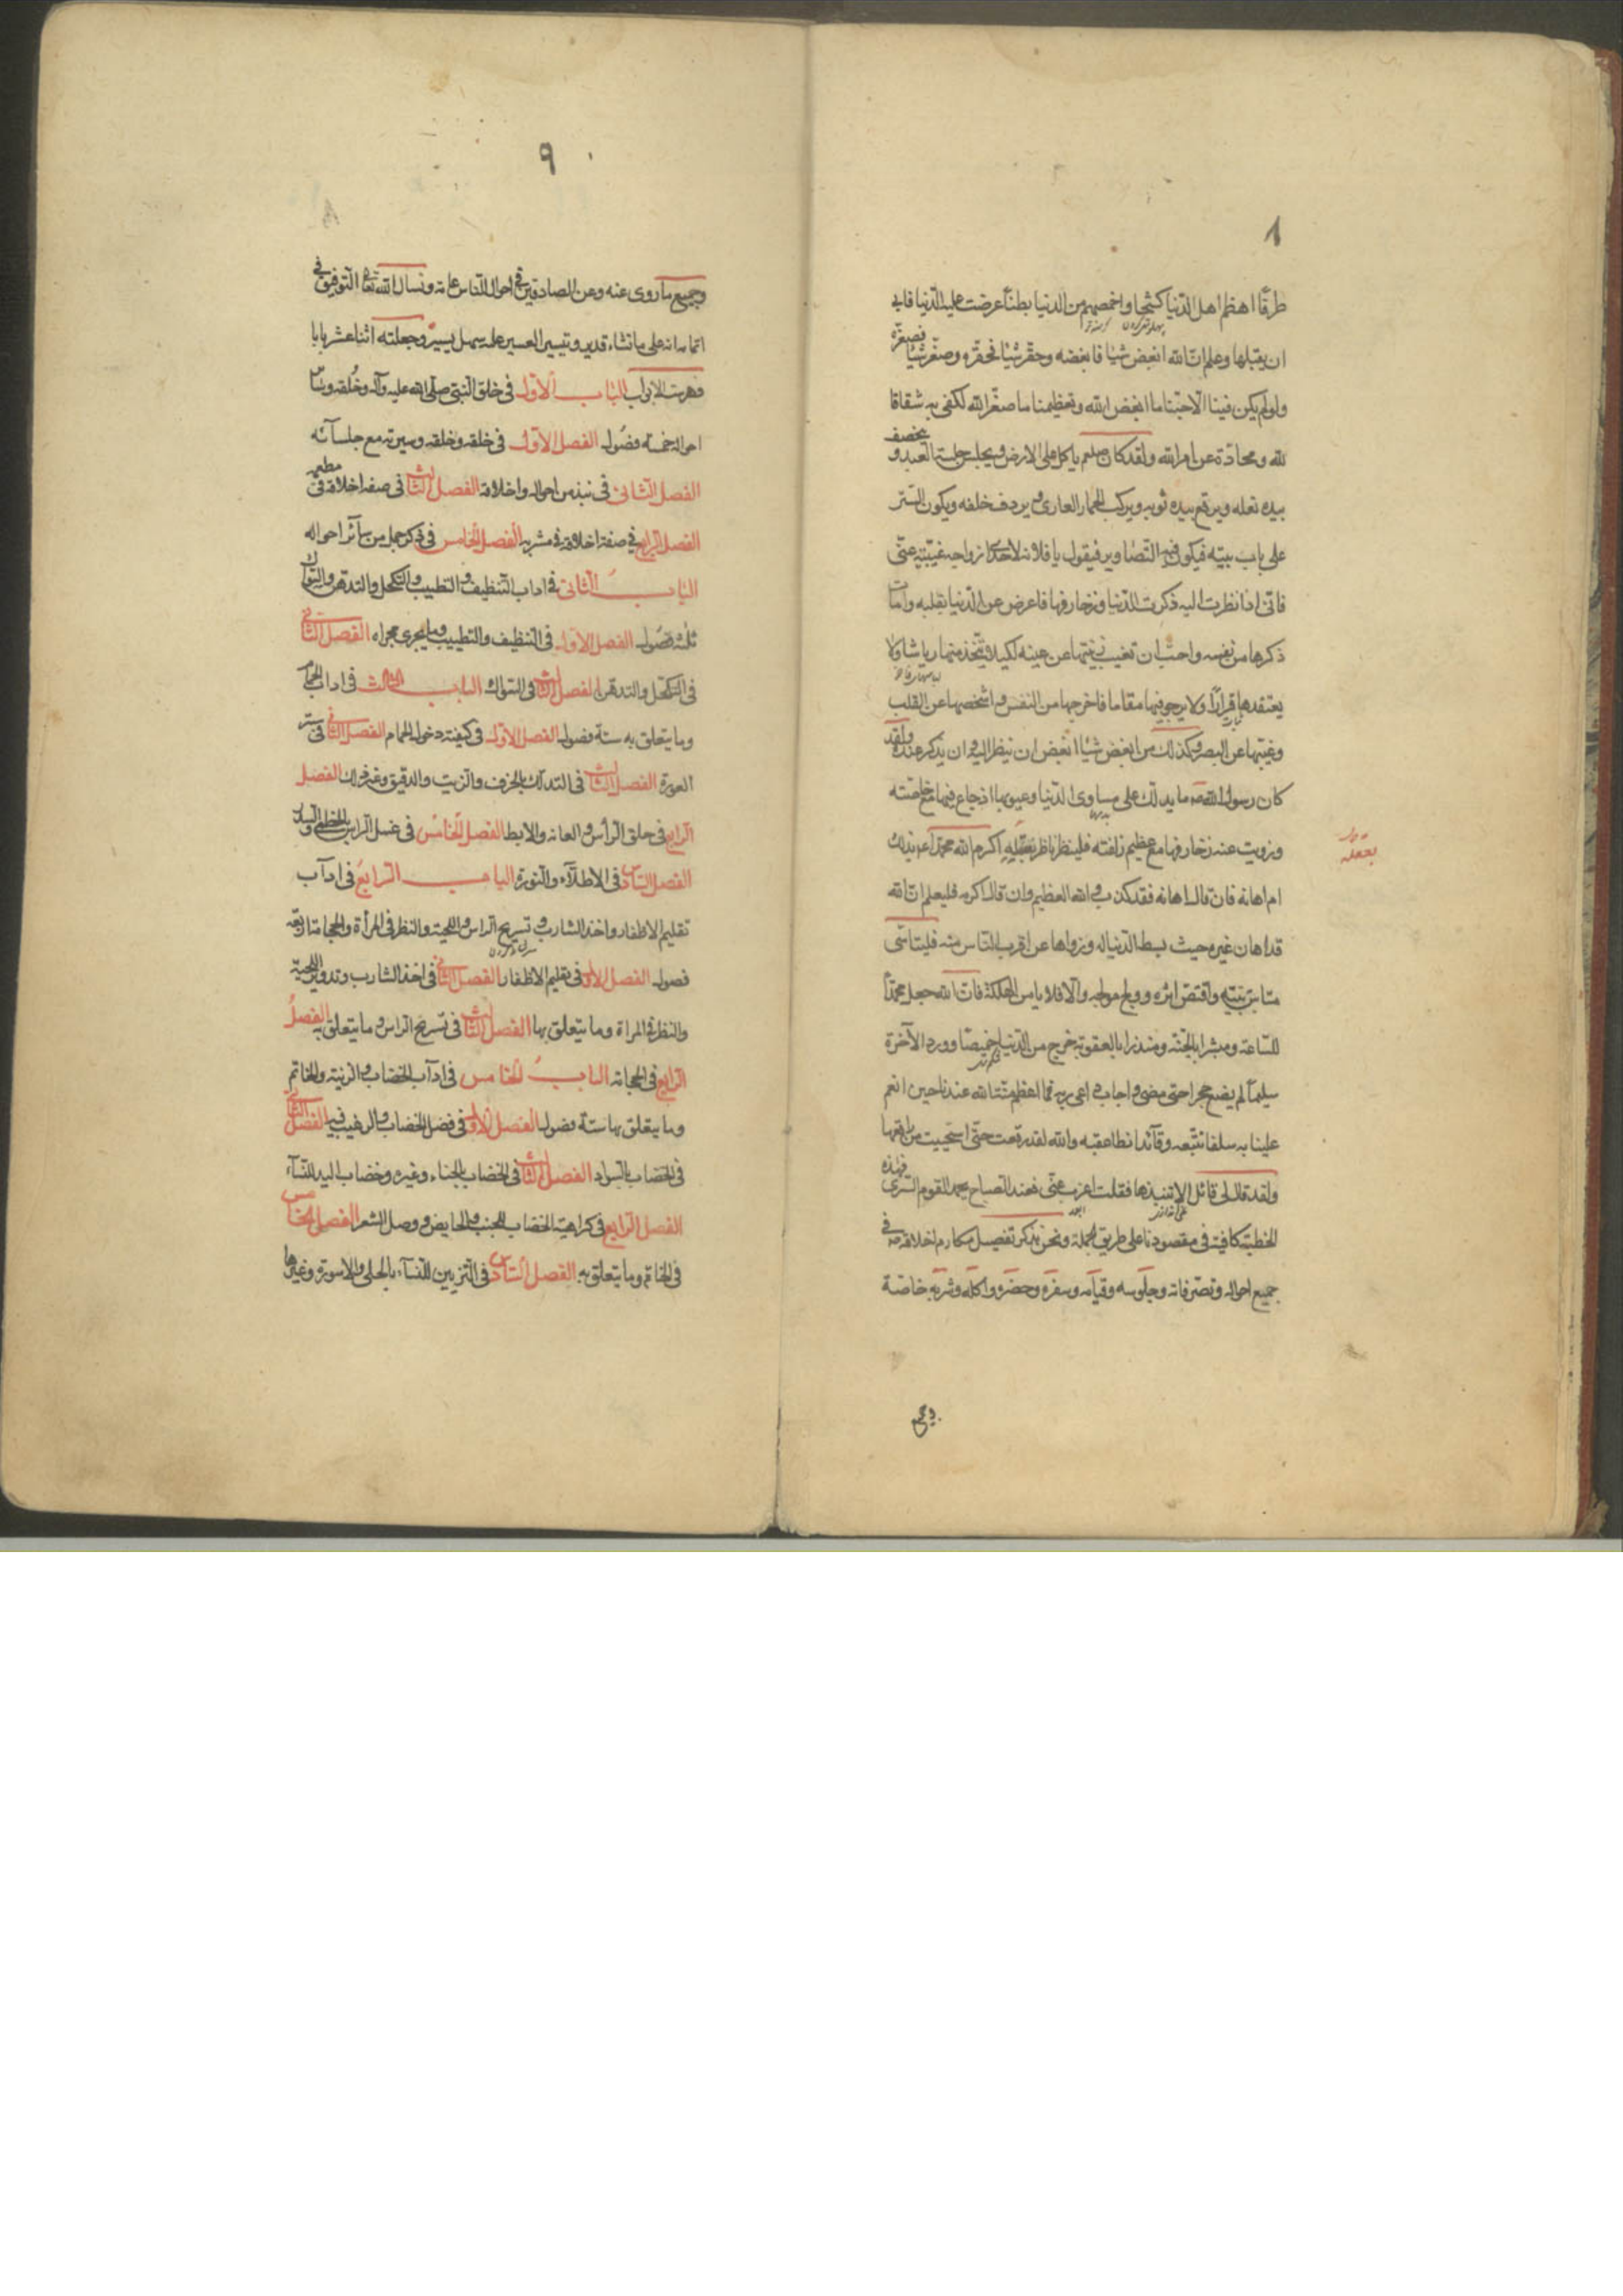 ٨
طرفًا اهظم اهل الدّنيا كشحًا واخمصهم من الدنيا بطنًا عرضت عليه الدّنيا فابى
ان يقبلها وعلم انّ الله ابغض شيئا فابغضه وحقّر شيئا فحقّره وصغّر شيئا فصغّره
ولو لم يكن فينا الّا حبّنا ما ابغض الله وتعظيمنا ما صغّر الله لكفى به شقاقا
لله ومحادّة عن امر الله ولقد كان صلعم ياكل على الارض ويجلس جلسة العبد ويخصف
بيده نعله ويرقع بيده ثوبه ويركب الحمار العارى ويردف خلفه ويكون الستر
على باب بيته فيكون فيه التصاوير فيقول يا فلانة لاحدى ازواجه غيّبيه عنّى
فانّى اذا نظرت اليه ذكرت الدّنيا وزخارفها فاعرض عن الدّنيا بقلبه وامات
ذكرها من نفسه واحبّ ان تغيب زينتها عن عينه لكيلا يتّخذ منها رياشا ولا
يعتقدها قرارًا ولا يرجو فيها مقاما فاخرجها من النفس واشخصها عن القلب
وغيّبها عن البصر وكذلك من ابغض شيئا ابغض ان ينظر اليه وان يذكر عنده ولقد
كان رسول الله صه ما يدلّك على مساوى الدّنيا وعيوبها اذ جاع فيها مع خاصّته
وزويت عنه زخارفها مع عظيم زلفته فلينظر ناظر بعقله اكرم الله محمّدا بذلك
بعقله
ام اهانه فان قال اهانه فقد كذب والله العظيم وان قال اكرمه فليعلم انّ الله
قد اهان غيره حيث بسط الدّنيا له وزواها عن اقرب النّاس منه فليتاسّى
متاسّ بنبيّه واقتصّ اثره وولج مولجه والّا فلا يامن الهلكة فانّ الله جعل محمّدًا
للسّاعة ومبشرا بالجنّة ومنذرا بالعقوبة خرج من الدّنيا خميصًا وورد الآخرة
سليمًا لم يضع حجرا حتى مضى واجاب داعى ربه فما اعظم منّة الله عندنا حين انعم
علينا به سلفا نتّبعه وقآئدا نطا عقبه والله لقد رقعت حتّى استحييت من راقعها
ولقد قال لى قائل الا تنبذها فقلت اعزب عنّى فعند الصباح يحمد القوم السّرى فهذه
الخطبة كافية فى مقصودنا على طريق الجملة ونحن نذكر تفصيل مكارم اخلاقه صه فى
جميع احواله وتصرّفاته وجلوسه وقيامه وسفره وحضره واكله وشربه خاصّة
وجميع
٩
وجميع ما روى عنه وعن الصادقين فى احوال النّاس عامة ونسال الله تعالى التوفيق فى
اتمامه انه على ما تشاء قدير وتيسير العسير عليه سهل يسير وجعلته اثنا عشر بابا
فهرست الابواب الباب الاوّل فى خلق النّبى صلّى الله عليه وآله وخُلقه وسائر
احواله خمسة فصُول الفصل الاوّل فى خلقه وخلقه وسيرته مع جلسآئه
الفصل الثانى فى نبذ من احواله واخلاقه الفصل الثالث فى صفة اخلاقه فى مطعمه
الفصل الرابع فى صفة اخلاقه فى مشربه الفصل الخامس فى ذكر جمل من سآئر احواله
الباب الثانى فى اداب التنظيف والتطييب والتكحل والتدهّن والسّواك
ثلثة فصُول الفصل الاول فى التنظيف والتطييب وما يجرى مجراه الفصل الثانى
فى التكحّل والتدهّن الفصل الثالث فى السّواك الباب الثالث فى اداب الحمام
وما يتعلق به ستة فصول الفصل الاول فى كيفية دخول الحمام الفصل الثانى فى ستر
العورة الفصل الثالث فى التدلك بالخزف والزيت والدقيق وغير ذلك الفصل
الرابع فى حلق الرأس والعانة والابط الفصل الخامس فى غسل الراس بالخطمى والسدر
الفصل السّادس فى الاطلآء والنورة الباب الرابع فى ادآب
تقليم الاظفار واخذ الشارب وتسريح الراس واللحية والنظر فى المرأة والحجامة اربعة
فصول الفصل الاول فى تقليم الاظفار الفصل الثانى فى اخذ الشارب وتدوير اللحية
والنظر فى المراة وما يتعلق بها الفصل الثالث فى تسريح الراس وما يتعلق به الفصل
الرابع فى الحجامة الباب الخامس فى ادآب الخضاب والزينة والخاتم
وما يتعلق بها ستة فصول الفصل الاول فى فضل الخضاب والترغيب فيه الفصل الثانى
فى الخضاب بالسواد الفصل الثالث فى الخضاب بالحناء وغيره وخضاب اليد للنسآء
الفصل الرابع فى كراهية الخضاب للجنب والحايض ووصل الشعر الفصل الخامس
فى الخاتم وما يتعلق به الفصل السّادس فى التزيين للنسآء بالحلى والاسورة وغيرها